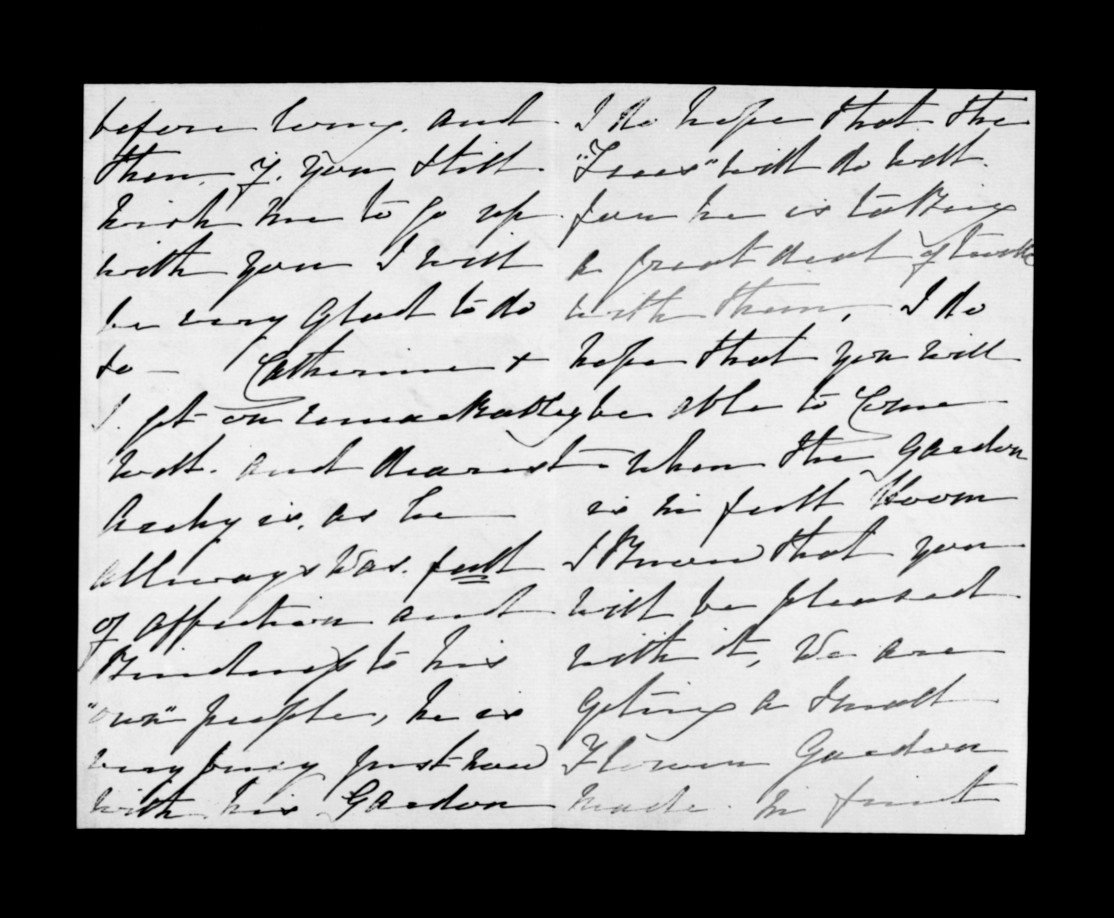 before long. and
then. if. you still
wish me to go up
with you I will
be very glad to do
so — Catherine &
I. get on remarkably
well. and dearest
Archy is. as he
allways was. full
of affection and
Kindness to his
"own" people, he is
very busy just now
with his Garden
I do hope that the
"Trees" will do well.
for he is taking
a great deal of trouble
with them, I do
hope that you will
be able to Come
when the Garden
is in full bloom
I Know that you
will be pleased
with it, We are
geting a small
Flower Garden
made. in front